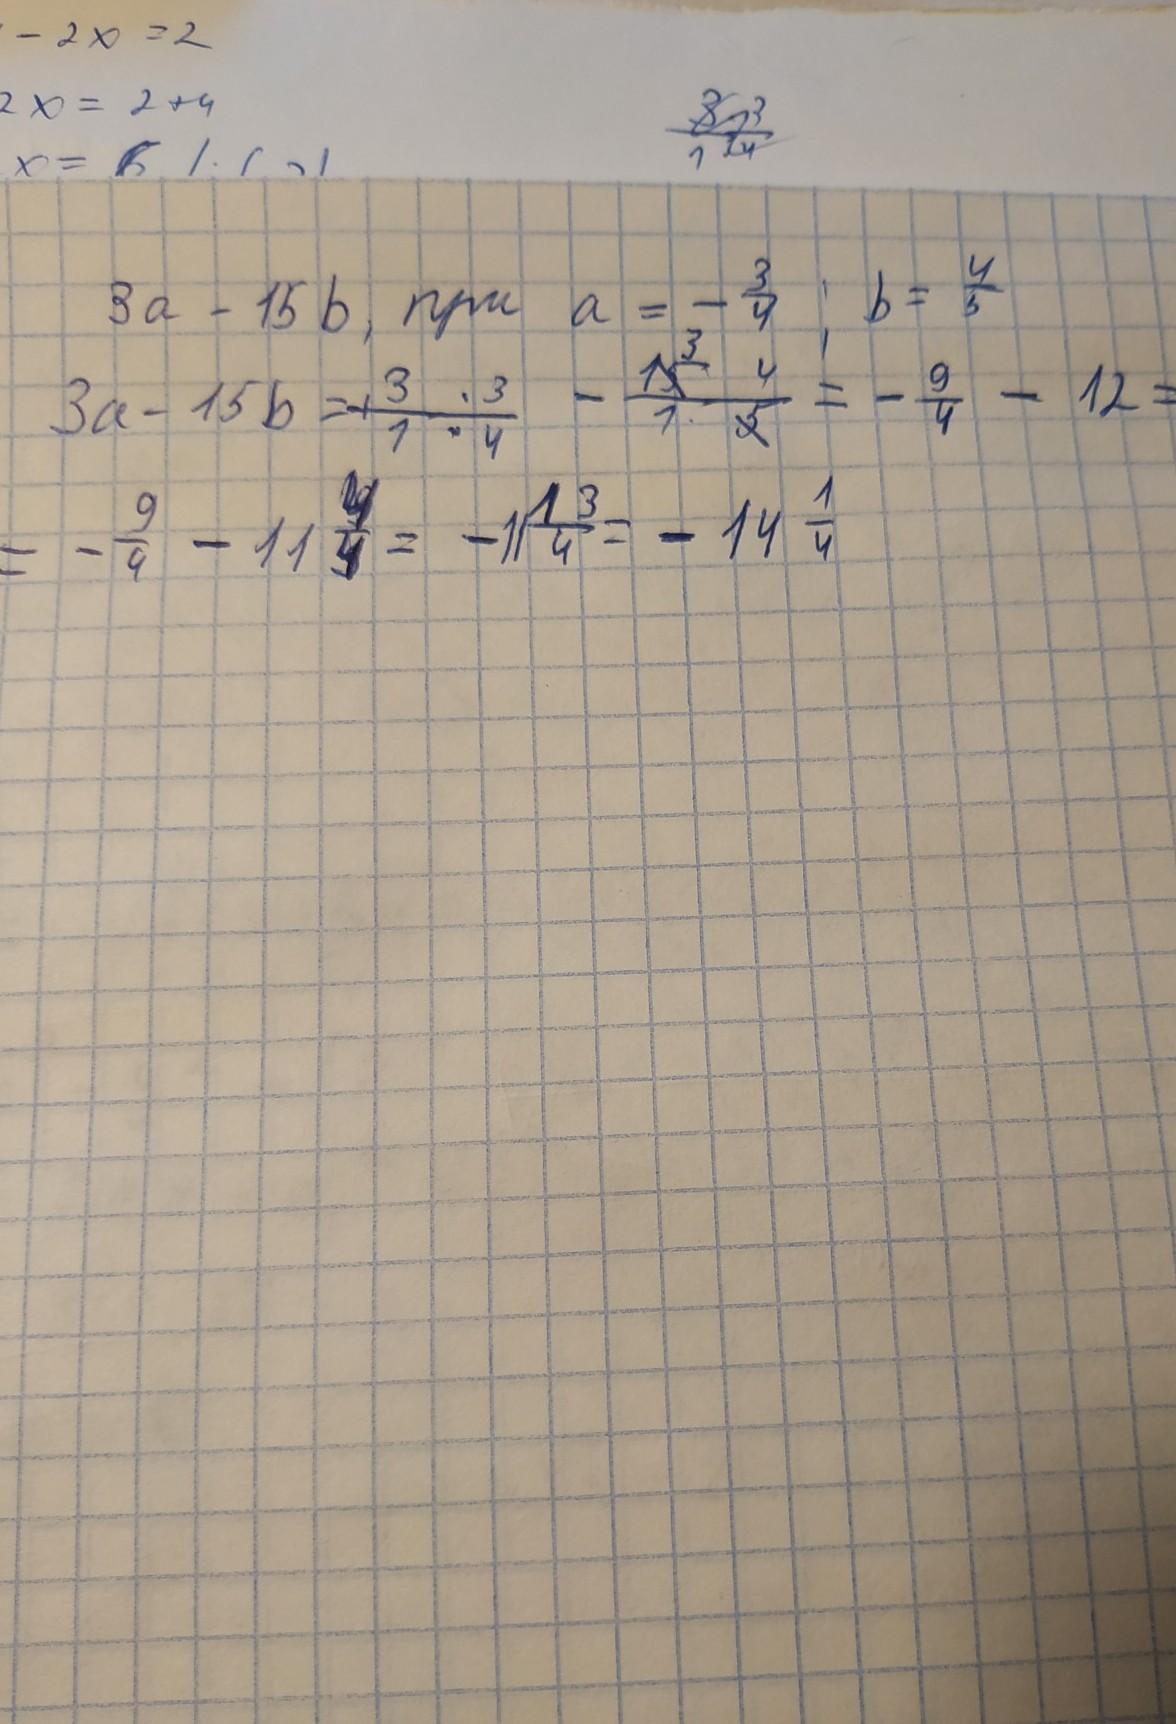 - 2x = 2
2x = 2+4
x =
3a - 15b, при a = - 3/4 ; b = 4/5
3a - 15b = - 3 · 3 / 1 · 4 - 15 3 4 / 1 · 5 = - 9/4 - 12 =
= - 9/4 - 11 4/4 = - 11 13/4 = - 14 1/4